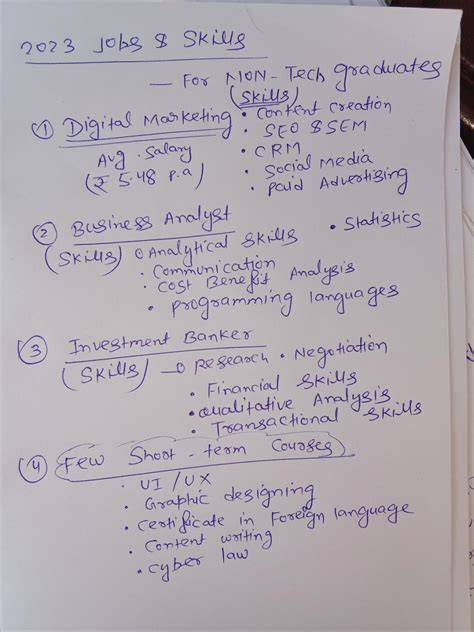 2023 Jobs & Skills
— For NON-Tech graduates
① Digital Marketing (Skills)
Avg. Salary
(₹ 5.48 p.a)
• Content creation
• SEO & SEM
• CRM
• Social Media
• Paid Advertising
② Business Analyst
(Skills) • Analytical Skills • Statistics
• Communication
• Cost Benefit Analysis
• programming languages
③ Investment Banker
(Skills) — • Research • Negotiation
• Financial Skills
• Qualitative Analysis
• Transactional Skills
④ Few Short-term Courses
• UI/UX
• Graphic designing
• Certificate in Foreign language
• Content writing
• Cyber law